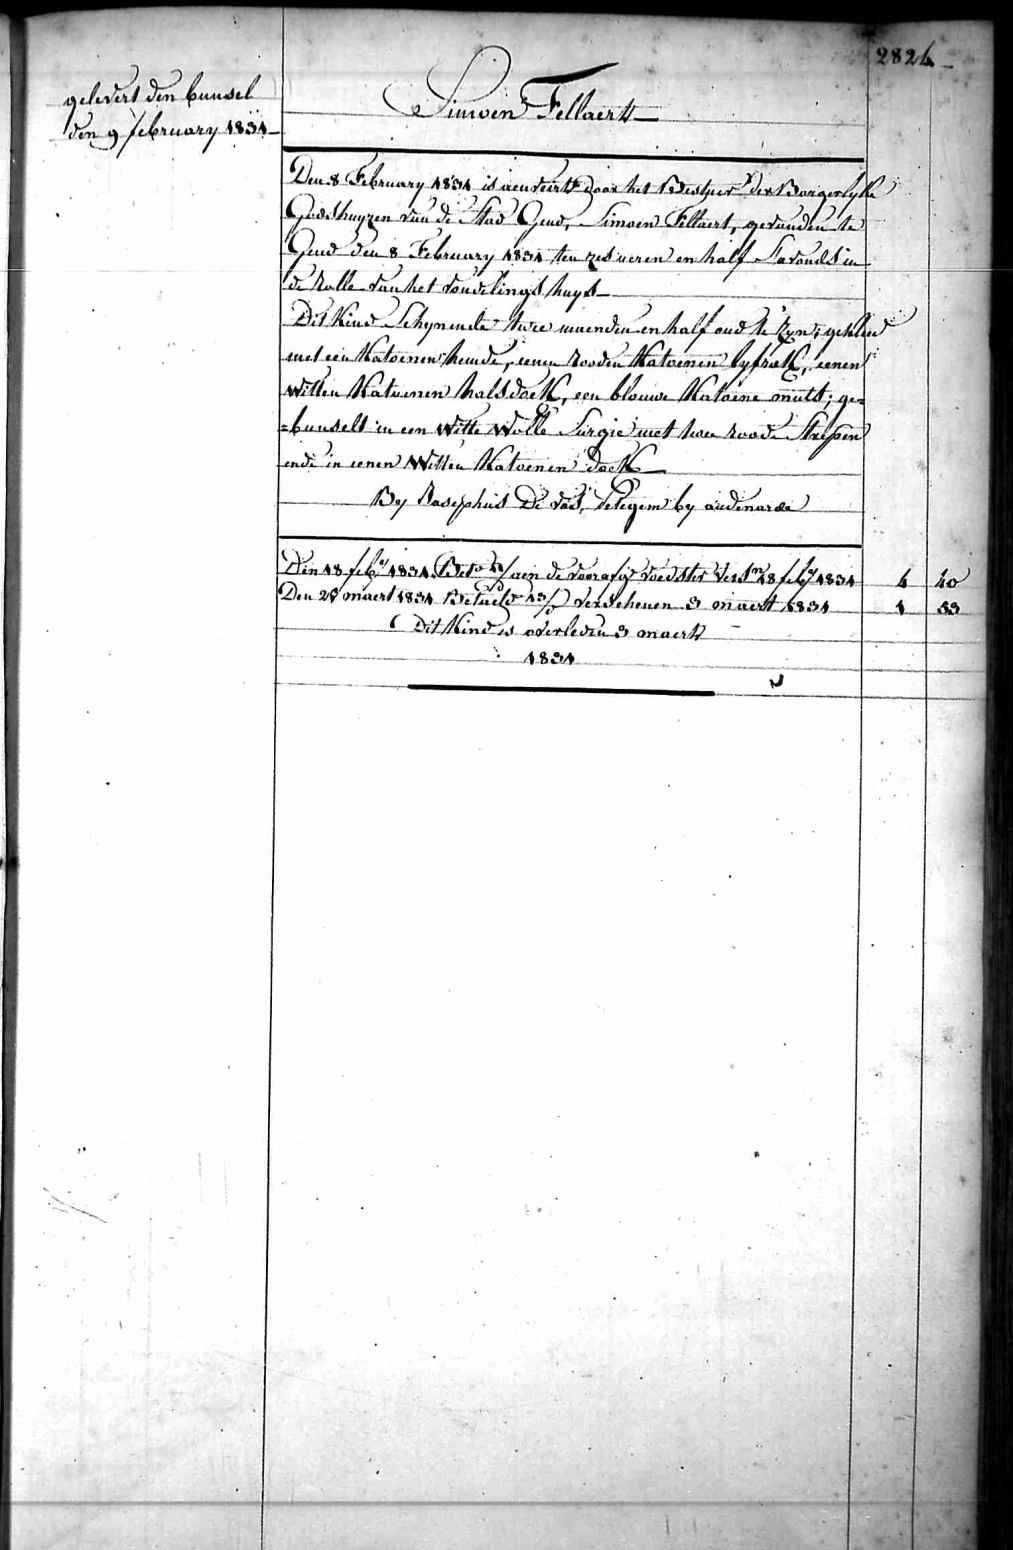 2824
gelevert den bunsel
den 9 february 1831
Simoen Fellaert
Den 8 February 1831 is aenveirt door het Bestuer der Borgerlyke
Godshuyzen van de Stad Gend, Simoen Fellaert, gevonden te
Gend den 8 February 1831 ten zes ueren en half S'avonds in
de Rolle van het vondelings huys
Dit Kind Schynende twee maenden en half oud te zyn; gekleed
met een Katoenen hemde, eenen rooden Katoenen lyfrok, eenen
witten Katoenen halsdoek, een blouwe Katoene muts; ge=
=bunselt in een witte wolle Sargie met twee roode Strepen
ende in eenen Witten Katoenen doek
By Josephus De vos, Petegem by audenarde
Den 18 feby 1831 aen de voorafge voedster Vers. 18 feby 1831 4 40
Den 28 maert 1831 Betaeld verschenen 3 maert 1831 1 53
Dit Kind is overleden 3 maert
1831